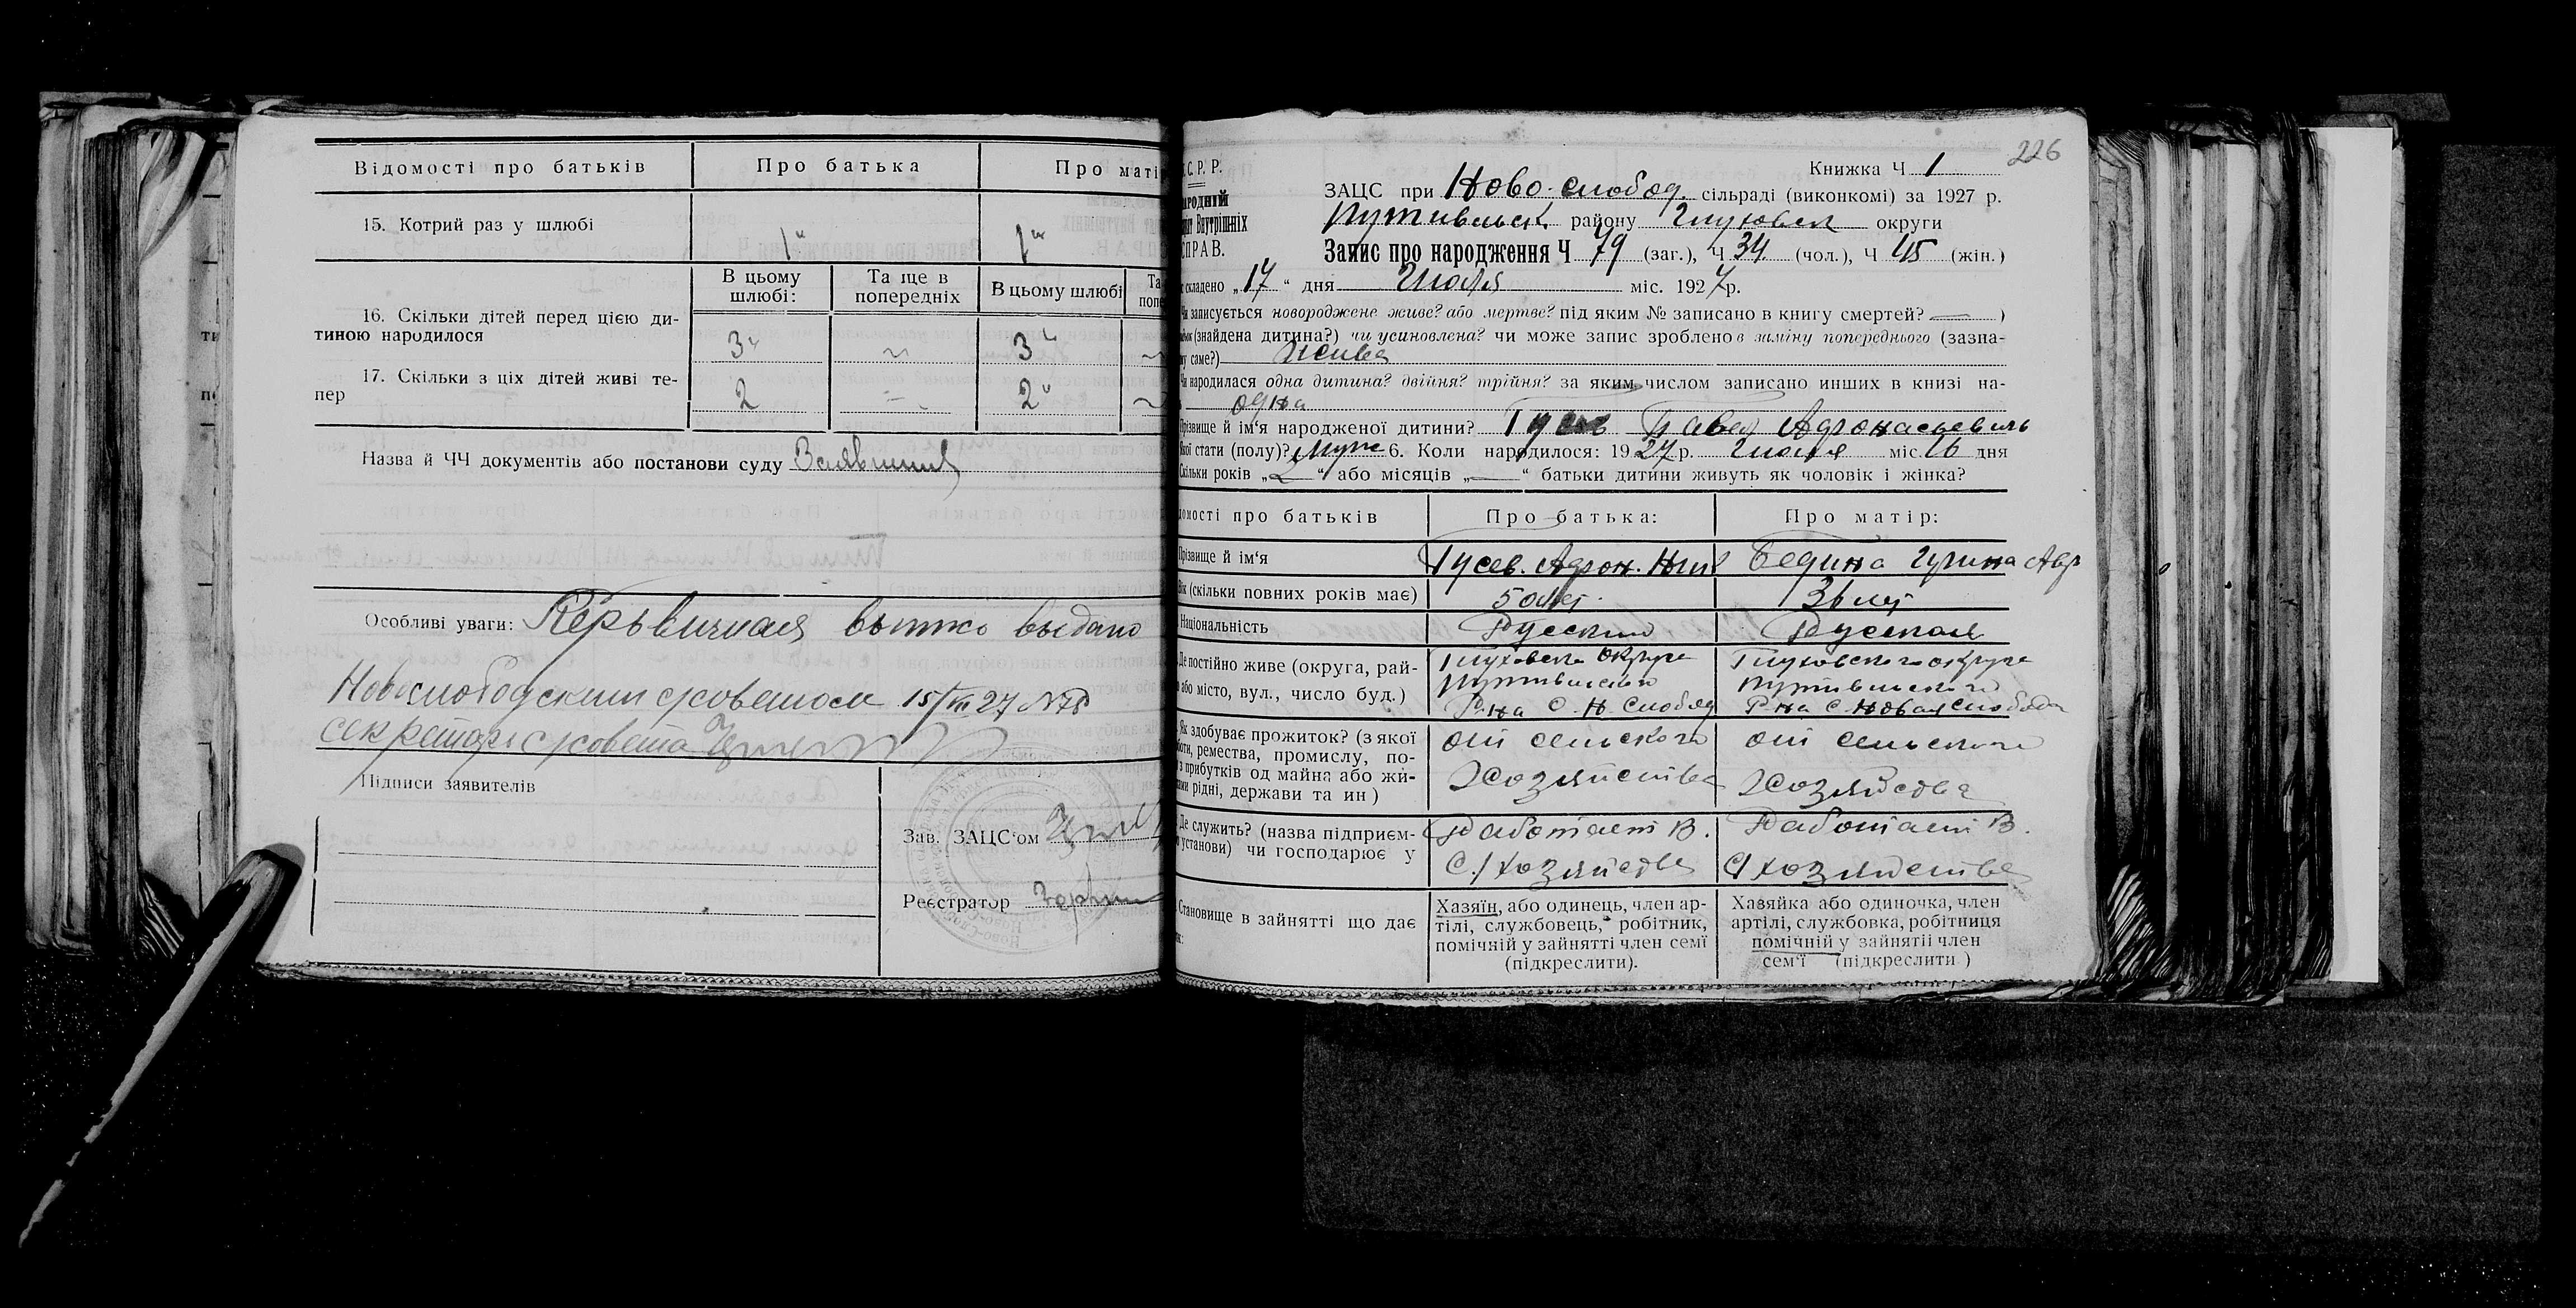 Відомості про батьків
Про батька
Про маті
15. Котрий раз у шлюбі
1"
1"
В цьому шлюбі:
Та ще в попередніх
В цьому шлюбі
Та
попе
16. Скільки дітей перед цією ди-
тиною народилося
3"
~
3"
~
17. Скільки з ціх дітей живі те-
пер
2
=
2"
~
Назва й ЧЧ документів або постанови суду
Особливі уваги: Перьвичная выдано
Новослободским с/советом 15/VII 27 N 78
секретарь с/совета
Підписи заявителів
Зав. ЗАЦС'ом
Реєстратор
226
С.Р.Р.
Внутрішніх
СПРАВ.
Книжка Ч 1
ЗАЦС при Ново-слобод. сільраді (виконкомі) за 1927 р.
Путивльск. району Глуховск округи
Запис про народження Ч 79 (заг.), Ч 34 (чол.), Ч 45 (жін.)
складено „17" дня Июля міс. 1927 р.
Чи записується новороджене живе? або мертве? під яким № записано в книгу смертей? — )
(знайдена дитина?) чи усиновлена? чи може запис зроблено в заміну попереднього (зазна-
саме?) Жива
Чи народилася одна дитина? двійня? трійня? за яким числом записано инших в книзі на-
одна
Прізвище й ім'я народженої дитини? Гусев Павел Афонасьевичь
стати (полу)? муж 6. Коли народилося: 1927 р. Июля міс. 16 дня
Скільки років „2" або місяців „—" батьки дитини живуть як чоловік і жінка?
домості про батьків
Про батька:
Про матір:
Прізвище й ім'я
Гусев. Афон. Ник
Бедина Ирина Авр
Вік (скільки повних років має)
50 лет.
36 лет
Національність
Русский
Русская
Де постійно живе (округа, рай-
або місто, вул., число буд.)
Глуховского округа
Путивльского
Р-на С. Н. Слобод
Глуховского округа
Путивльского
Р-на С. Новая Слобода
Як здобуває прожиток? (з якої
ремества, промислу, по-
з прибутків од майна або жи-
рідні, держави та ин)
от сельского
Хозяйства
от сельского
Хозяйства
Де служить? (назва підприєм-
установи) чи господарює у
Работает В.
С/хозяйстве
Работает В.
С/хозяйстве
Становище в зайнятті що дає
Хазяїн, або одинець, член ар-
тілі, службовець, робітник,
помічній у зайнятті член семї
(підкреслити).
Хазяйка або одиночка, член
артілі, службовка, робітниця
помічній у зайнятіі член
сем'ї (підкреслити)